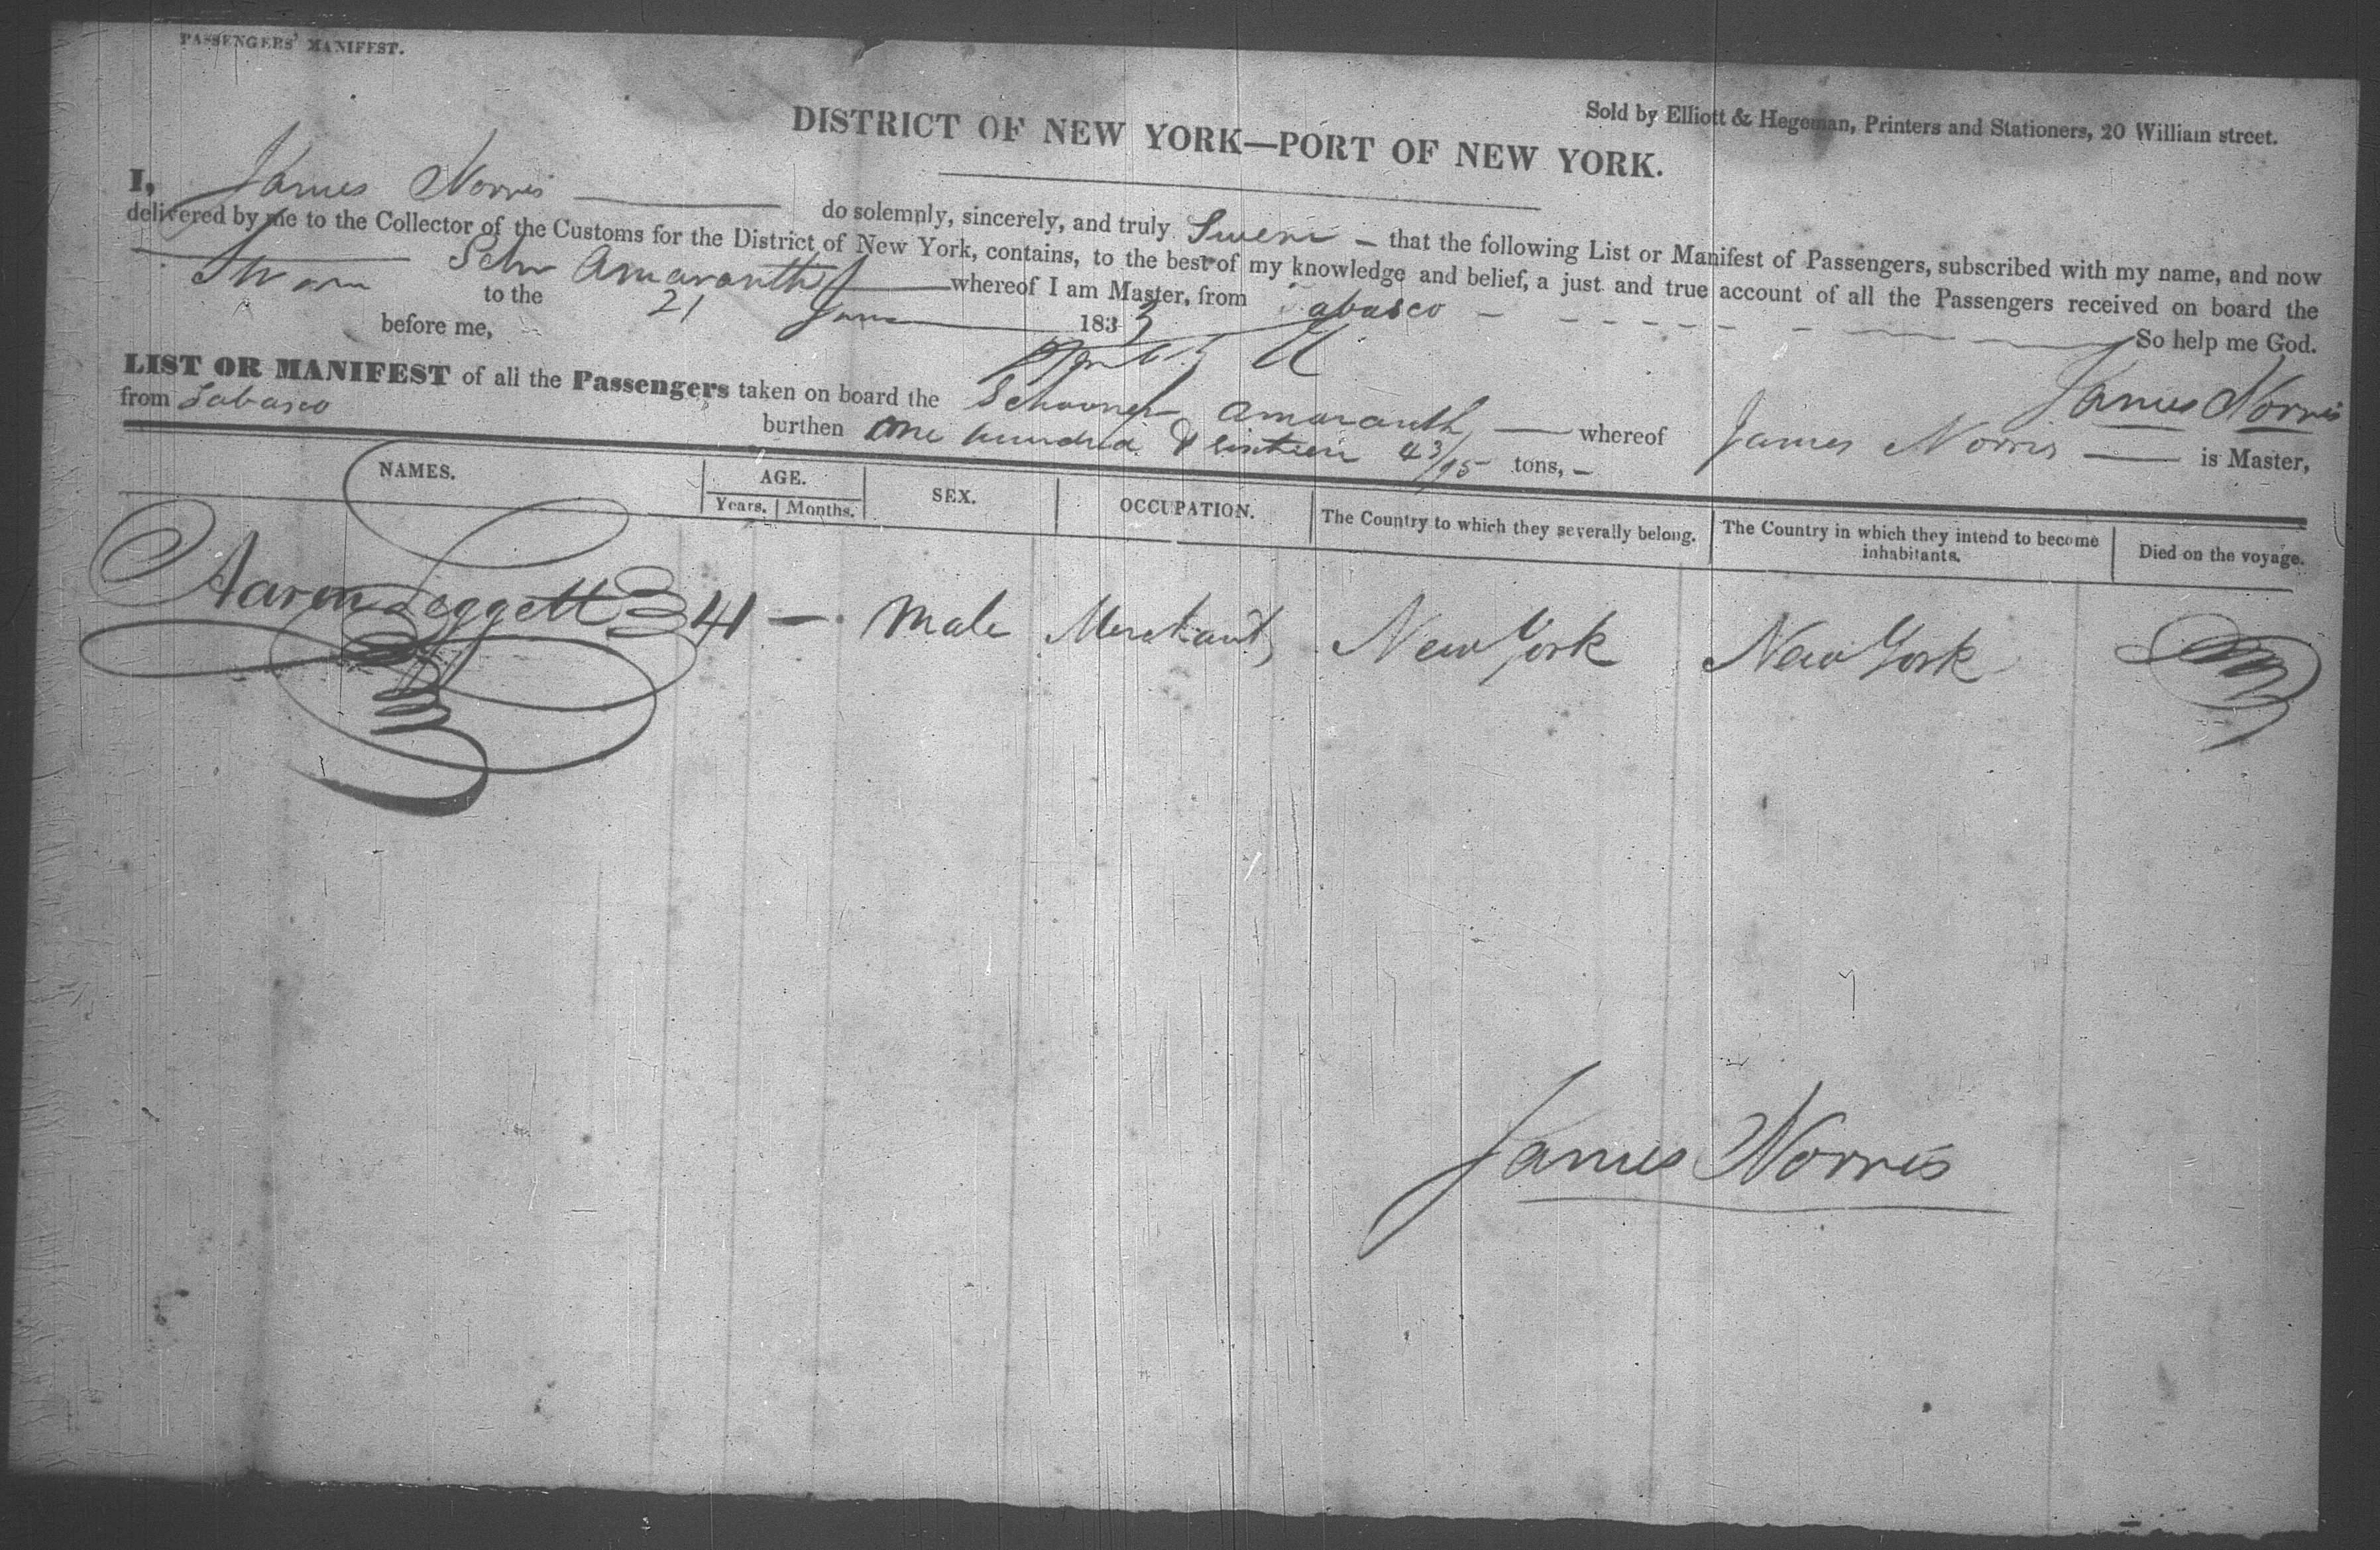 PASSENGERS' MANIFEST.
Sold by Elliott & Hegeman, Printers and Stationers, 20 William street.
DISTRICT OF NEW YORK—PORT OF NEW YORK.
I, James Norris do solemnly, sincerely, and truly Swear – that the following List or Manifest of Passengers, subscribed with my name, and now
delivered by me to the Collector of the Customs for the District of New York, contains, to the best of my knowledge and belief, a just and true account of all the Passengers received on board the
Schr Amaranth whereof I am Master, from Tabasco
Sworn to the 21 June 1833 So help me God.
before me,
James Norris
LIST OR MANIFEST of all the Passengers taken on board the Schooner Amaranth — whereof James Norris — is Master,
from Tabasco burthen One hundred & sixteen 43/95 tons, –
NAMES. AGE. SEX. OCCUPATION. The Country to which they severally belong. The Country in which they intend to become inhabitants. Died on the voyage.
Years. Months.
Aaron Leggett 41 — Male Merchant New York New York
James Norris